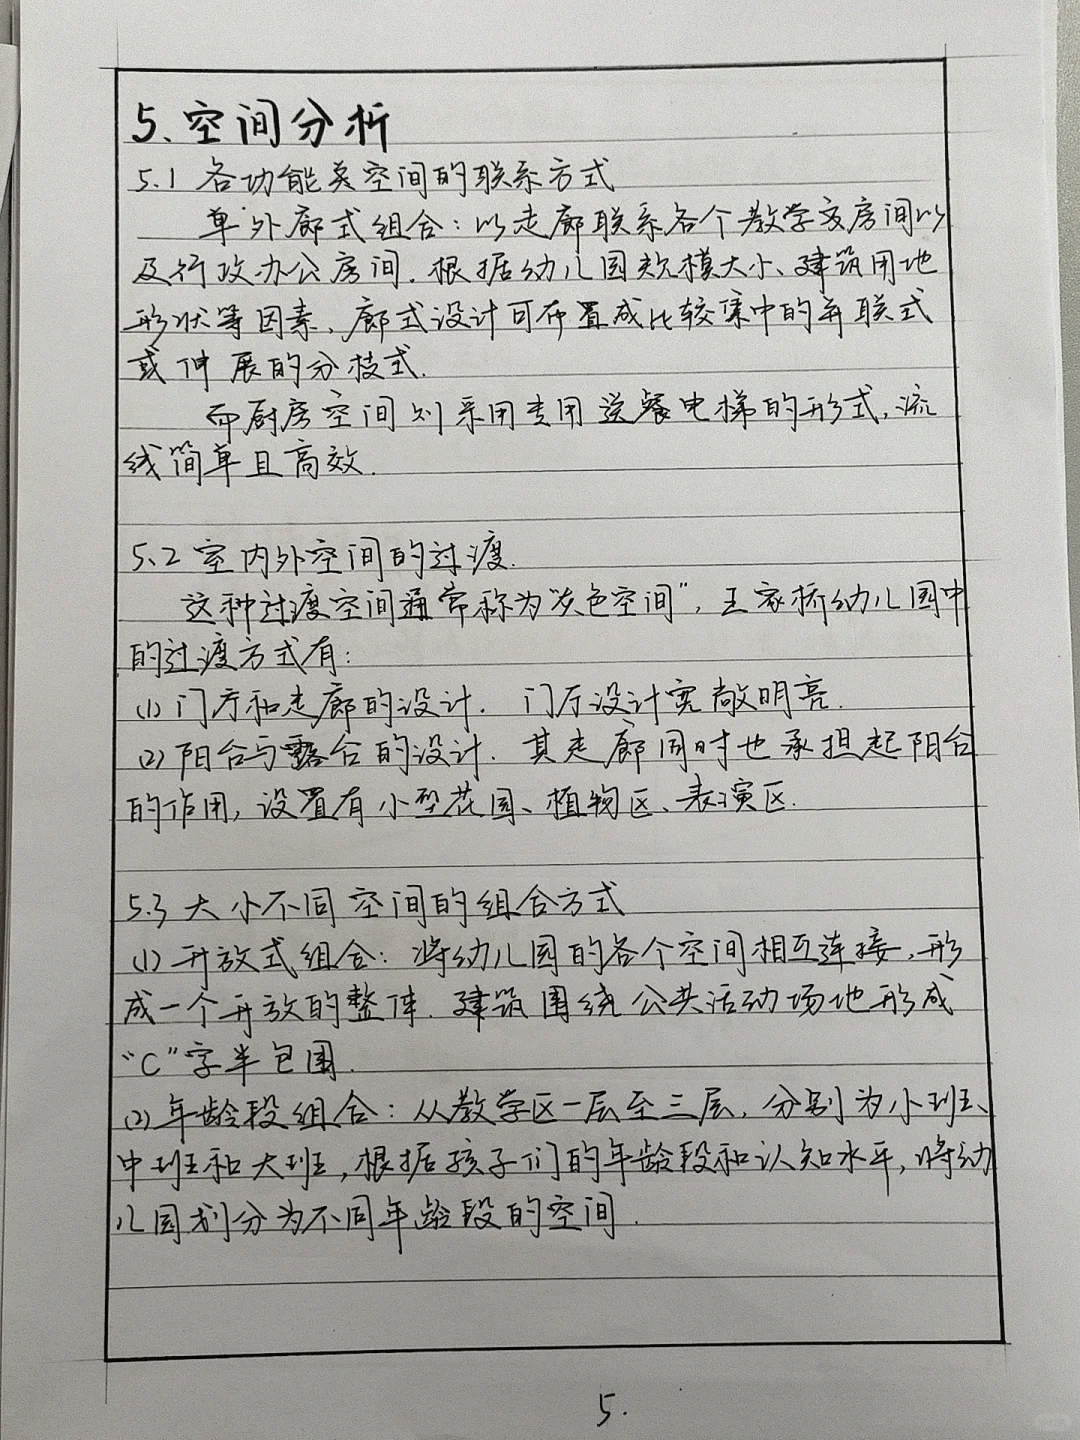 5、空间分析
5.1 各功能类空间的联系方式
单外廊式组合：以走廊联系各个教学房间以
及行政办公房间.根据幼儿园规模大小、建筑用地
形状等因素、廊式设计可布置成比较集中的并联式
或伸展的分枝式.
而厨房空间则采用专用送餐电梯的形式,流
线简单且高效.
5.2 室内外空间的过渡.
这种过渡空间通常称为"灰色空间",王家桥幼儿园中
的过渡方式有:
(1)门厅和走廊的设计. 门厅设计宽敞明亮.
(2)阳台与露台的设计. 其走廊同时也承担起阳台
的作用,设置有小型花园、植物区、表演区.
5.3 大小不同空间的组合方式
(1)开放式组合: 将幼儿园的各个空间相互连接,形
成一个开放的整体.建筑围绕公共活动场地形成
"C"字半包围.
(2)年龄段组合: 从教学区一层至三层,分别为小班、
中班和大班,根据孩子们的年龄段和认知水平,将幼
儿园划分为不同年龄段的空间.
5.